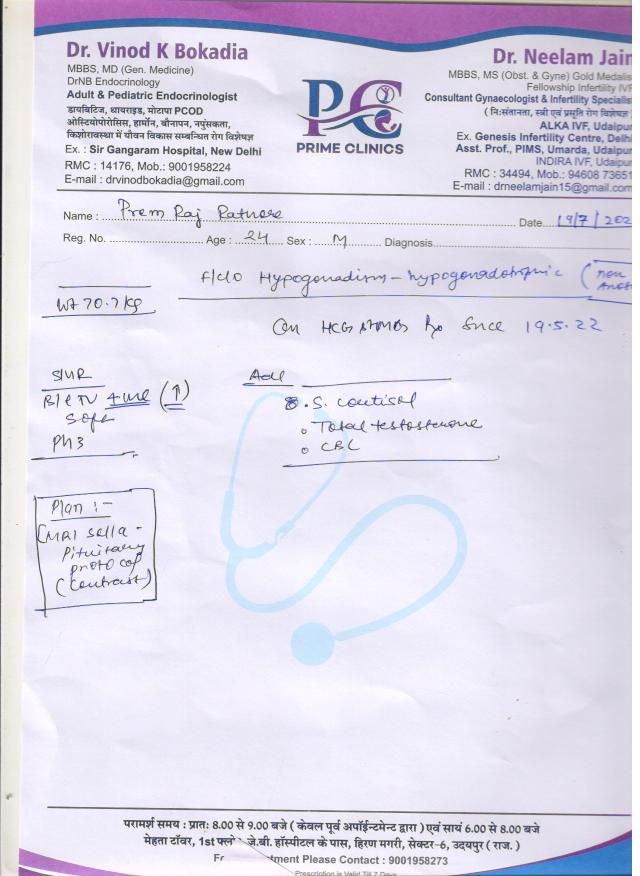 Dr. Vinod K Bokadia
MBBS, MD (Gen. Medicine)
DrNB Endocrinology
Adult & Pediatric Endocrinologist
डायबिटिज, थायराइड, मोटापा PCOD
ओस्टियोपोरोसिस, हार्मोन, बौनापन, नपुंसकता,
किशोरावस्था में यौवन विकास सम्बन्धित रोग विशेषज्ञ
Ex. : Sir Gangaram Hospital, New Delhi
RMC : 14176, Mob.: 9001958224
E-mail : drvinodbokadia@gmail.com
PC
PRIME CLINICS
Dr. Neelam Jain
MBBS, MS (Obst. & Gyne) Gold Medalis
Fellowship Infertility IVF
Consultant Gynaecologist & Infertility Specialis
( नि:संतानता, स्त्री एवं प्रसूति रोग विशेषज्ञ
ALKA IVF, Udaipu
Ex. Genesis Infertility Centre, Delhi
Asst. Prof., PIMS, Umarda, Udaipu
INDIRA IVF, Udaipu
RMC : 34494, Mob.: 94608 73651
E-mail : drneelamjain15@gmail.com
Name : Prem Raj Ratnore Date 19/7/202
Reg. No. Age : 24 Sex : M Diagnosis
F/C/O Hypogonadism - hypogonadotropic (non
Wt 70.7 kg
On HCG since 19.5.22
SMR
4 ml (↑)
Ph3
Adv
S. cortisol
Total testosterone
CBC
Plan :-
MRI sella -
Pituitary
protocol
(Contrast)
परामर्श समय : प्रात: 8.00 से 9.00 बजे ( केवल पूर्व अपॉईन्टमेन्ट द्वारा ) एवं सायं 6.00 से 8.00 बजे
मेहता टॉवर, 1st जे.बी. हॉस्पीटल के पास, हिरण मगरी, सेक्टर-6, उदयपुर ( राज. )
tment Please Contact : 9001958273
Prescription is Valid Till 7 Days